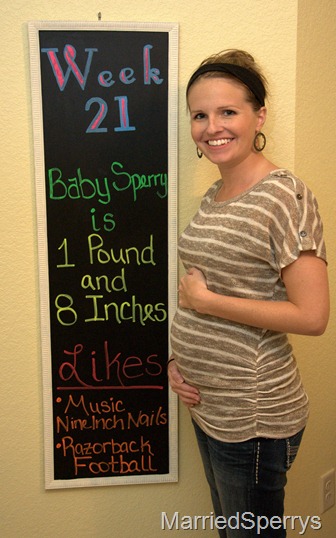 Week
21
Baby Sperry
is
1 Pound
and
8 Inches
Likes
• Music
Nine Inch Nails
• Razorback
Football
MarriedSperrys